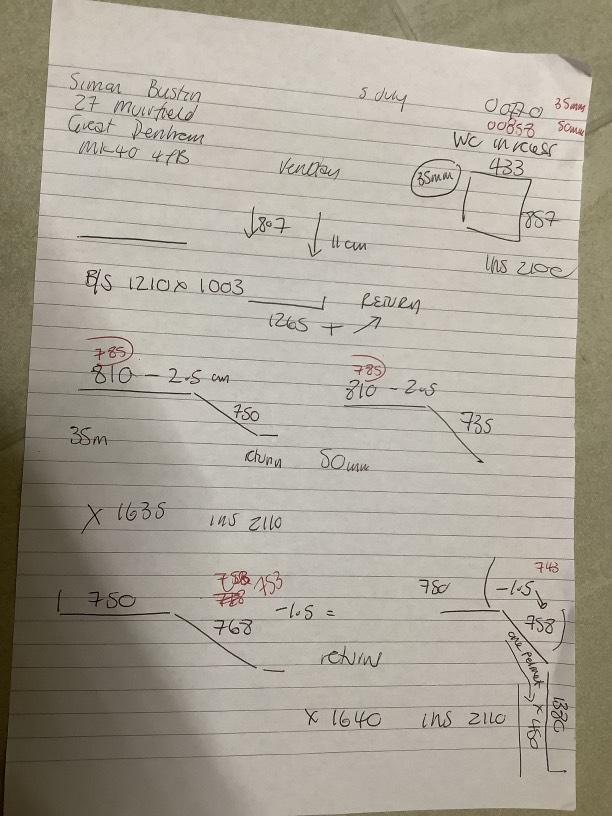 Simon Bustin
5 July
0070 35mm
27 muirfield
00858 50mm
Great Denham
WC in recess
MK40 4FB
433
35mm
857
↓807 ↓ 11cm
ins 2100
B/S 1210 x 1003
1265 + ↗ RETURN
785
785
810 - 2.5 cm
810 - 2.5
750
735
35m
return
50mm
X 1635 ins 2110
743
753
750
768 -1.5 =
750
(-1.5
758)
return
one pelmet
x 460
1380
x 1640 ins 2110